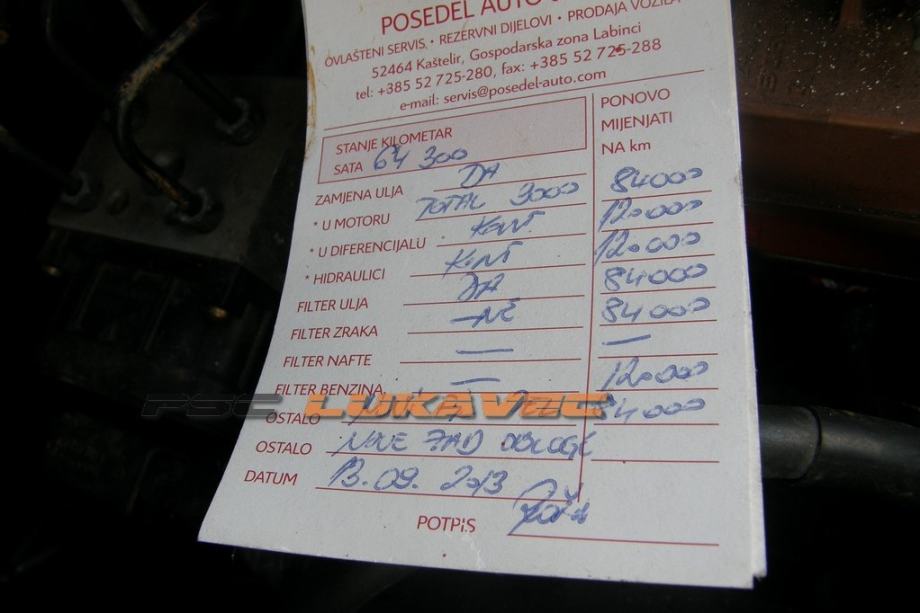 POSEDEL AUTO
OVLAŠTENI SERVIS • REZERVNI DIJELOVI • PRODAJA VOZILA
52464 Kaštelir, Gospodarska zona Labinci
tel: +385 52 725-280, fax: +385 52 725-288
e-mail: servis@posedel-auto.com
STANJE KILOMETAR
SATA 64 300
PONOVO
MIJENJATI
NA km
ZAMJENA ULJA DA 84000
* U MOTORU TOTAL 3000 120000
* U DIFERENCIJALU KONT 120000
* HIDRAULICI KONT 84000
FILTER ULJA DA 84000
FILTER ZRAKA — NE —
FILTER NAFTE — 120000
FILTER BENZINA — 84000
OSTALO
OSTALO NOVE ZAD OBLOGE
DATUM 13.09. 2013
POTPIS
PSC LUKAVEC